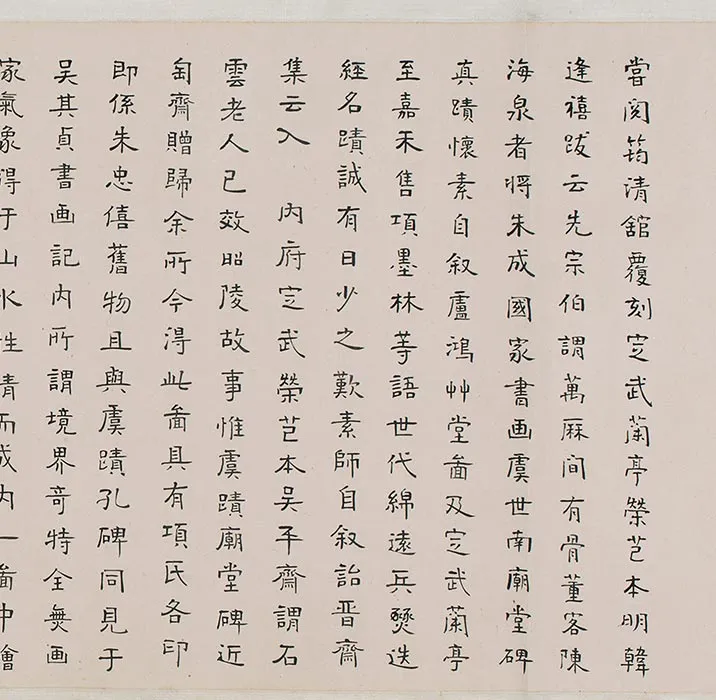 嘗閱筠清舘覆刻㝎武蘭亭榮芑本明韓
逢禧跋云先宗伯謂萬厤間有骨董客陳
海泉者將朱成國家書画虞世南廟堂碑
真蹟懷素自叙盧鴻艸堂啚及㝎武蘭亭
至嘉禾售項墨林等語世代綿遠兵燹迭
經名蹟誠有日少之歎素師自叙詒晋齋
集云入 内府㝎武榮芑本吴平齋謂石
雲老人已效昭陵故事惟虞蹟廟堂碑近
匋齋贈歸余所今得此啚具有項氏各印
即係朱忠僖舊物且與虞蹟孔碑同見于
吴其貞書画記内所謂境界奇特全無画
家氣象得于山水性情而成内一啚中繪